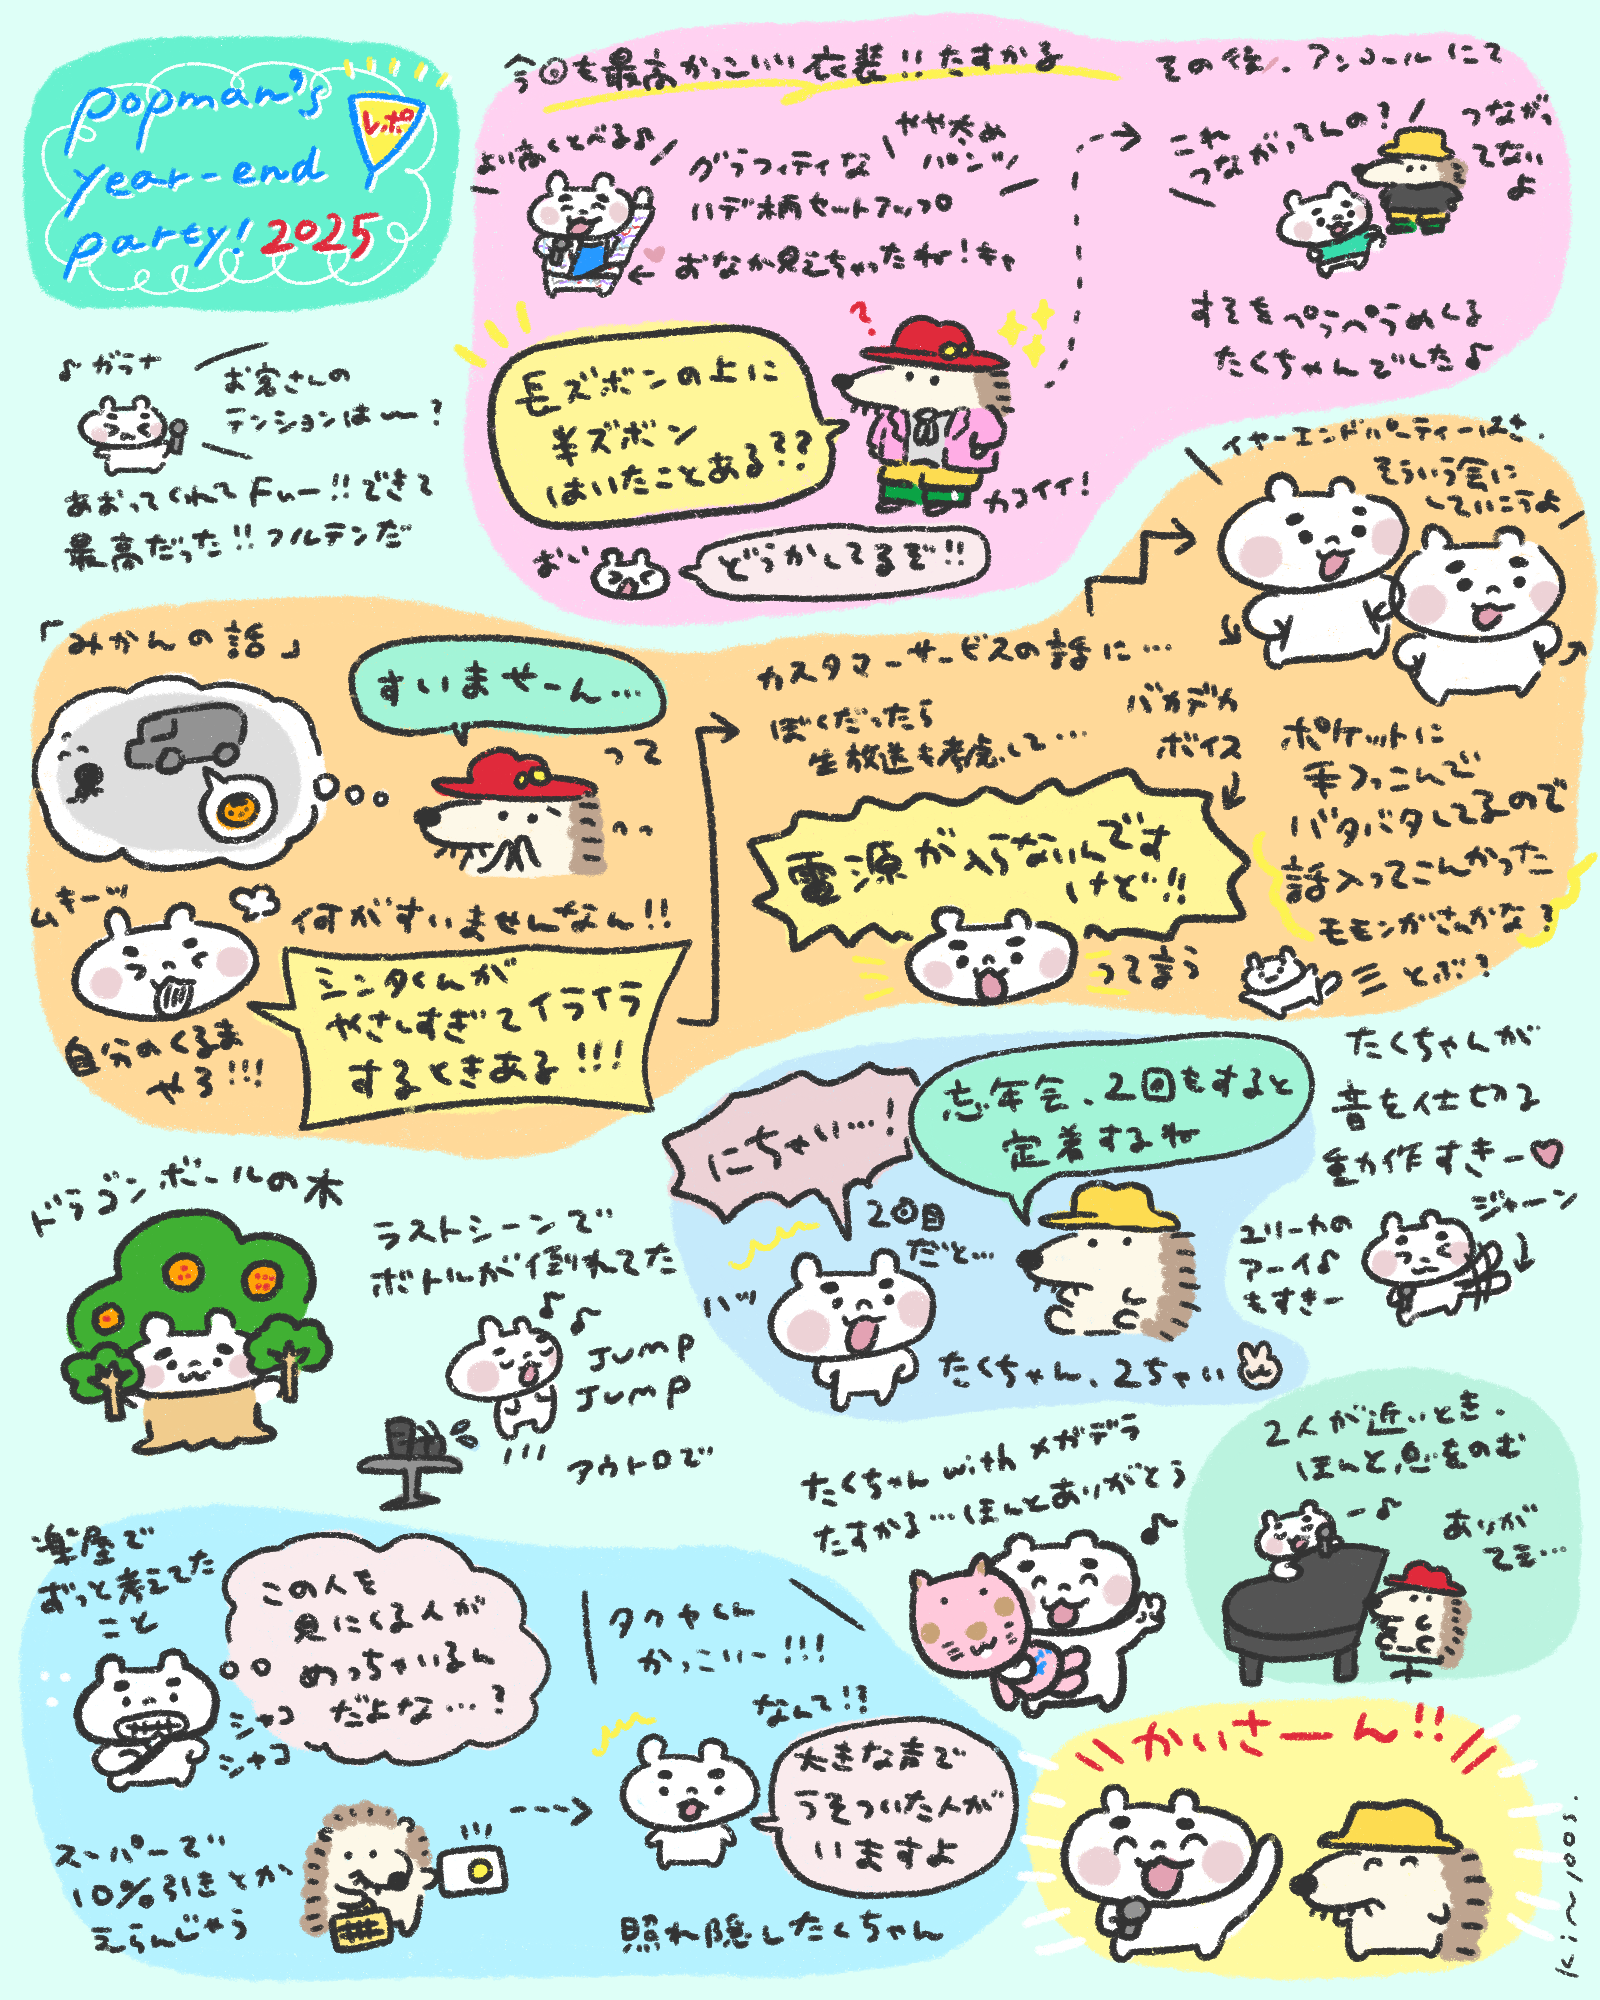 popman's
year-end
party! 2025
レポ
♪ガラナ
お客さんの
テンションは〜?
あおってくれてFuー!!できて
最高だった!!フルテンだ
今回も最高かっこいい衣装!!たすかる
より高くとべる♪
グラフィティな
ハデ柄セットアップ
やや太め
パンツ
← おなか見えちゃったね!キャ
毛ズボンの上に
半ズボン
はいたことある??
?
カコイイ!
おい
どうかしてるぞ!!
その後、アンコールにて
これ
つながってんの?
つながっ
てない
よ
すそをペラペラめくる
たくちゃんでした♪
「みかんの話」
すいませーん…
って
ムキーッ
何がすいませんなん!!
シンタくんが
やさしすぎてイライラ
するときある!!!
自分のくるま
やろ!!!
カスタマーサービスの話に…
ぼくだったら
生放送も考慮して…
バカデカ
ボイス
電源が入らないんです
けど!!
って言う
イヤーエンドパーティーはさ、
そういう会に
していこうよ
ポケットに
手つっこんで
バタバタしてるので
話入ってこんかった
モモンガさんかな?
とぶ?
ドラゴンボールの木
ラストシーンで
ボトルが倒れてた
JUMP
JUMP
アウトロで
にちゃい…!
忘年会、2回もすると
定着するね
2回目
だと…
ハッ
たくちゃん、2ちゃい
たくちゃんが
音を仕切る
動作すきー
ジャーン
ユリーカの
アーイ♪
もすきー
たくちゃん with メガデラ
たすかる…ほんとありがとう
2人が近いとき、
ほんと息をのむ
ー♪
ありが
てえ…
楽屋で
ずっと考えてた
こと
この人を
見にくる人が
めっちゃいるん
だよな…?
シャコ
シャコ
スーパーで
10%引きとか
えらんじゃう
タクヤくん
かっこいー!!!
なんて!?
大きな声で
うそついた人が
いますよ
照れ隠したくちゃん
かいさーん!!
ki~yoos.